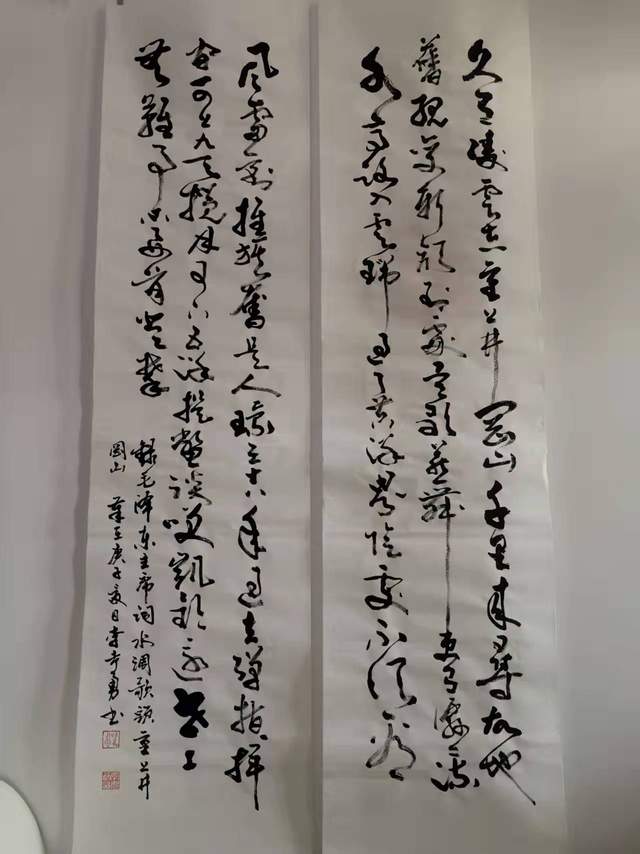 久有凌雲志重上井岡山千里來尋故地
舊貌變新顏到處鶯歌燕舞更有潺潺流
水高路入雲端過了黃洋界險處不須看
風雷動旌旗奮是人寰三十八年過去彈指一揮
間可上九天攬月可下五洋捉鱉談笑凱歌還世上
無難事只要肯登攀
錄毛澤东主席詞水調歌頭重上井
岡山 庚子夏日 勇书